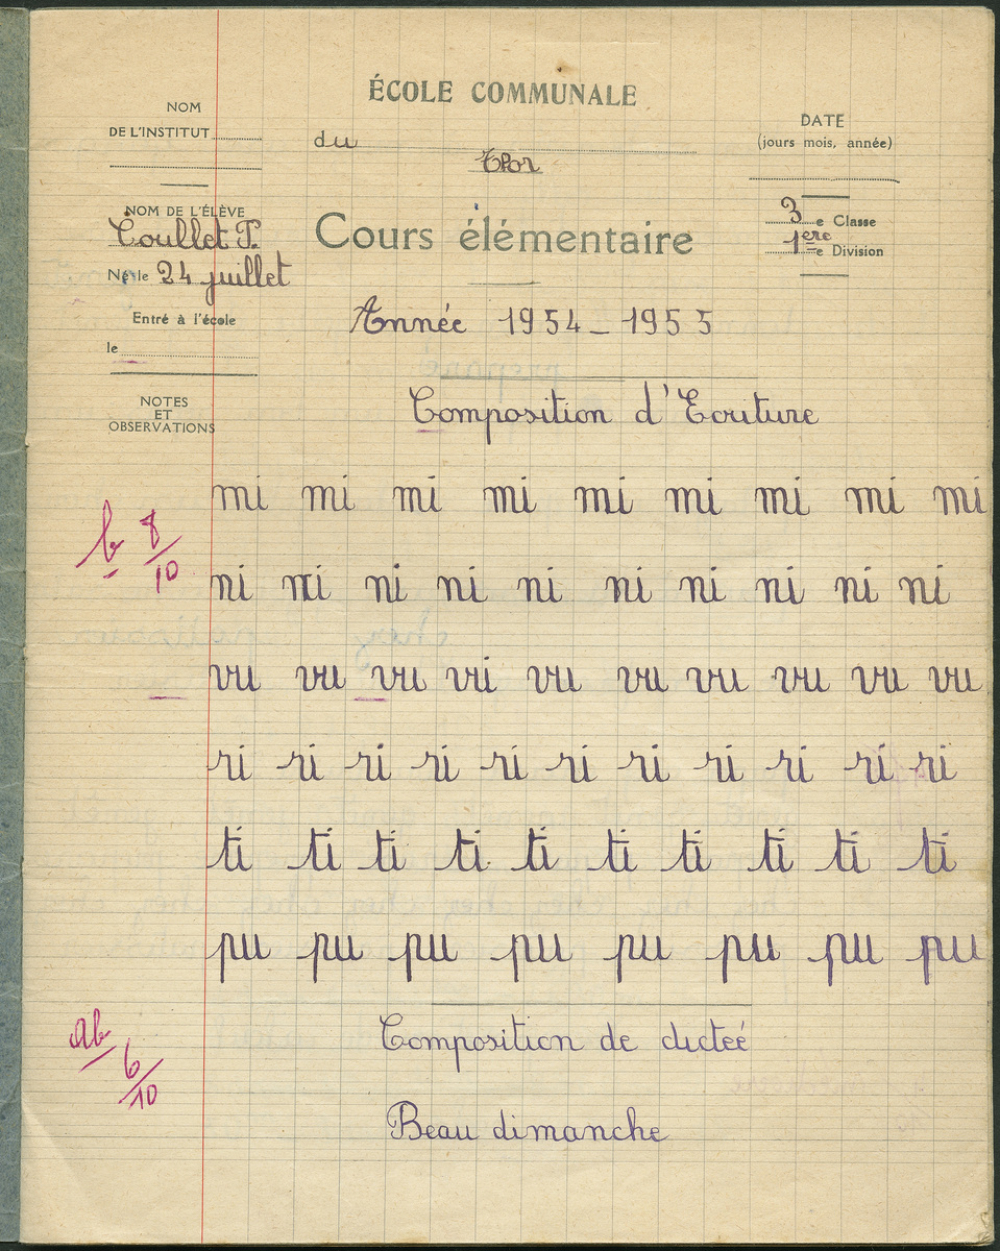 ÉCOLE COMMUNALE
du
Thor
NOM
DE L'INSTITUT
DATE
(jours mois, année)
NOM DE L'ÉLÈVE
Coullet P.
Né le 24 juillet
Entré à l'école
le
Cours élémentaire
3 e Classe
1ère e Division
Année 1954_1955
NOTES
ET
OBSERVATIONS
Composition d'Ecriture
b 8/10
mi mi mi mi mi mi mi mi mi
ni ni ni ni ni ni ni ni ni ni
vu vu vu vui vu vu vu vu vu vu
ri ri ri ri ri ri ri ri ri ri ri
ti ti ti ti ti ti ti ti ti ti
pu pu pu pu pu pu pu pu
ab 6/10
Composition de dicteé
Beau dimanche